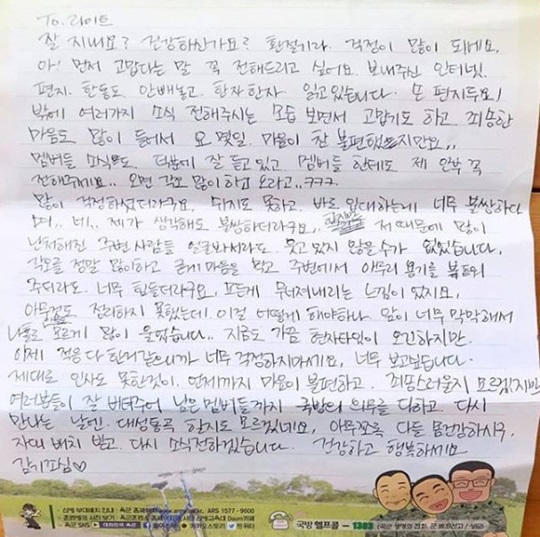 To. 라이트
잘 지내요? 건강하신가요? 환절기라. 걱정이 많이 되네요.
아! 먼저 고맙다는 말 꼭 전해드리고 싶어요. 보내주신 인터넷.
편지. 한통도 안빼놓고. 한자한자. 읽고있습니다. 손 편지두요!
밖에 여러가지 소식 전해주시는 모습 보면서 고맙기도 하고 죄송한
마음도 많이 들어서 요 몇일. 마음이 참 불편했지만요..
멤버들 소식도. 덕분에 잘 듣고 있고 멤버들 한테도 제 안부 꼭
전해주세요.. 오면 각오 많이하고 오라고..ㅋㅋㅋ.
많이 걱정하셨더라구요. 쉬지도 못하고. 바로 입대하는데 너무 불쌍하다
며.. 네.. 제가 생각해도 불쌍하더라구요. 저 때문에 많이
난처해진 주변 사람들 얼굴봐서라도. 웃고 있지 않을수가 없었습니다.
각오를 정말 많이하고 굳게 마음을 먹고 주변에서 아무리 용기를 북돋아
주더라도. 너무 힘들더라구요. 모든게 무너져내리는 느낌이 있지요.
아무것도 정리하지 못했는데. 이걸 어떻게 해야하나 앞이 너무 막막해서
나름 모르게 많이 울었습니다.. 지금도 가끔 현자타임이 오긴하지만.
이제 적응 다 한거같으니까 너무 걱정하지마세요, 너무 보고싶습니다.
제대로 인사도 못한것이. 언제까지 마음이 불편하고. 죄송스러울지 모르겠지만
여러분들이 잘 버텨주어 남은 멤버들까지 국방의 의무를 다하고. 다시
만나는 날엔. 대성통곡 할지도 모르겠네요, 아무쪼록 다들 몸건강하시구,
자대 배치 받고. 다시 소식전하겠습니다. 건강하고 행복하세요
김기광♡
ARS 1577 - 9600
국방헬프콜 - 1303